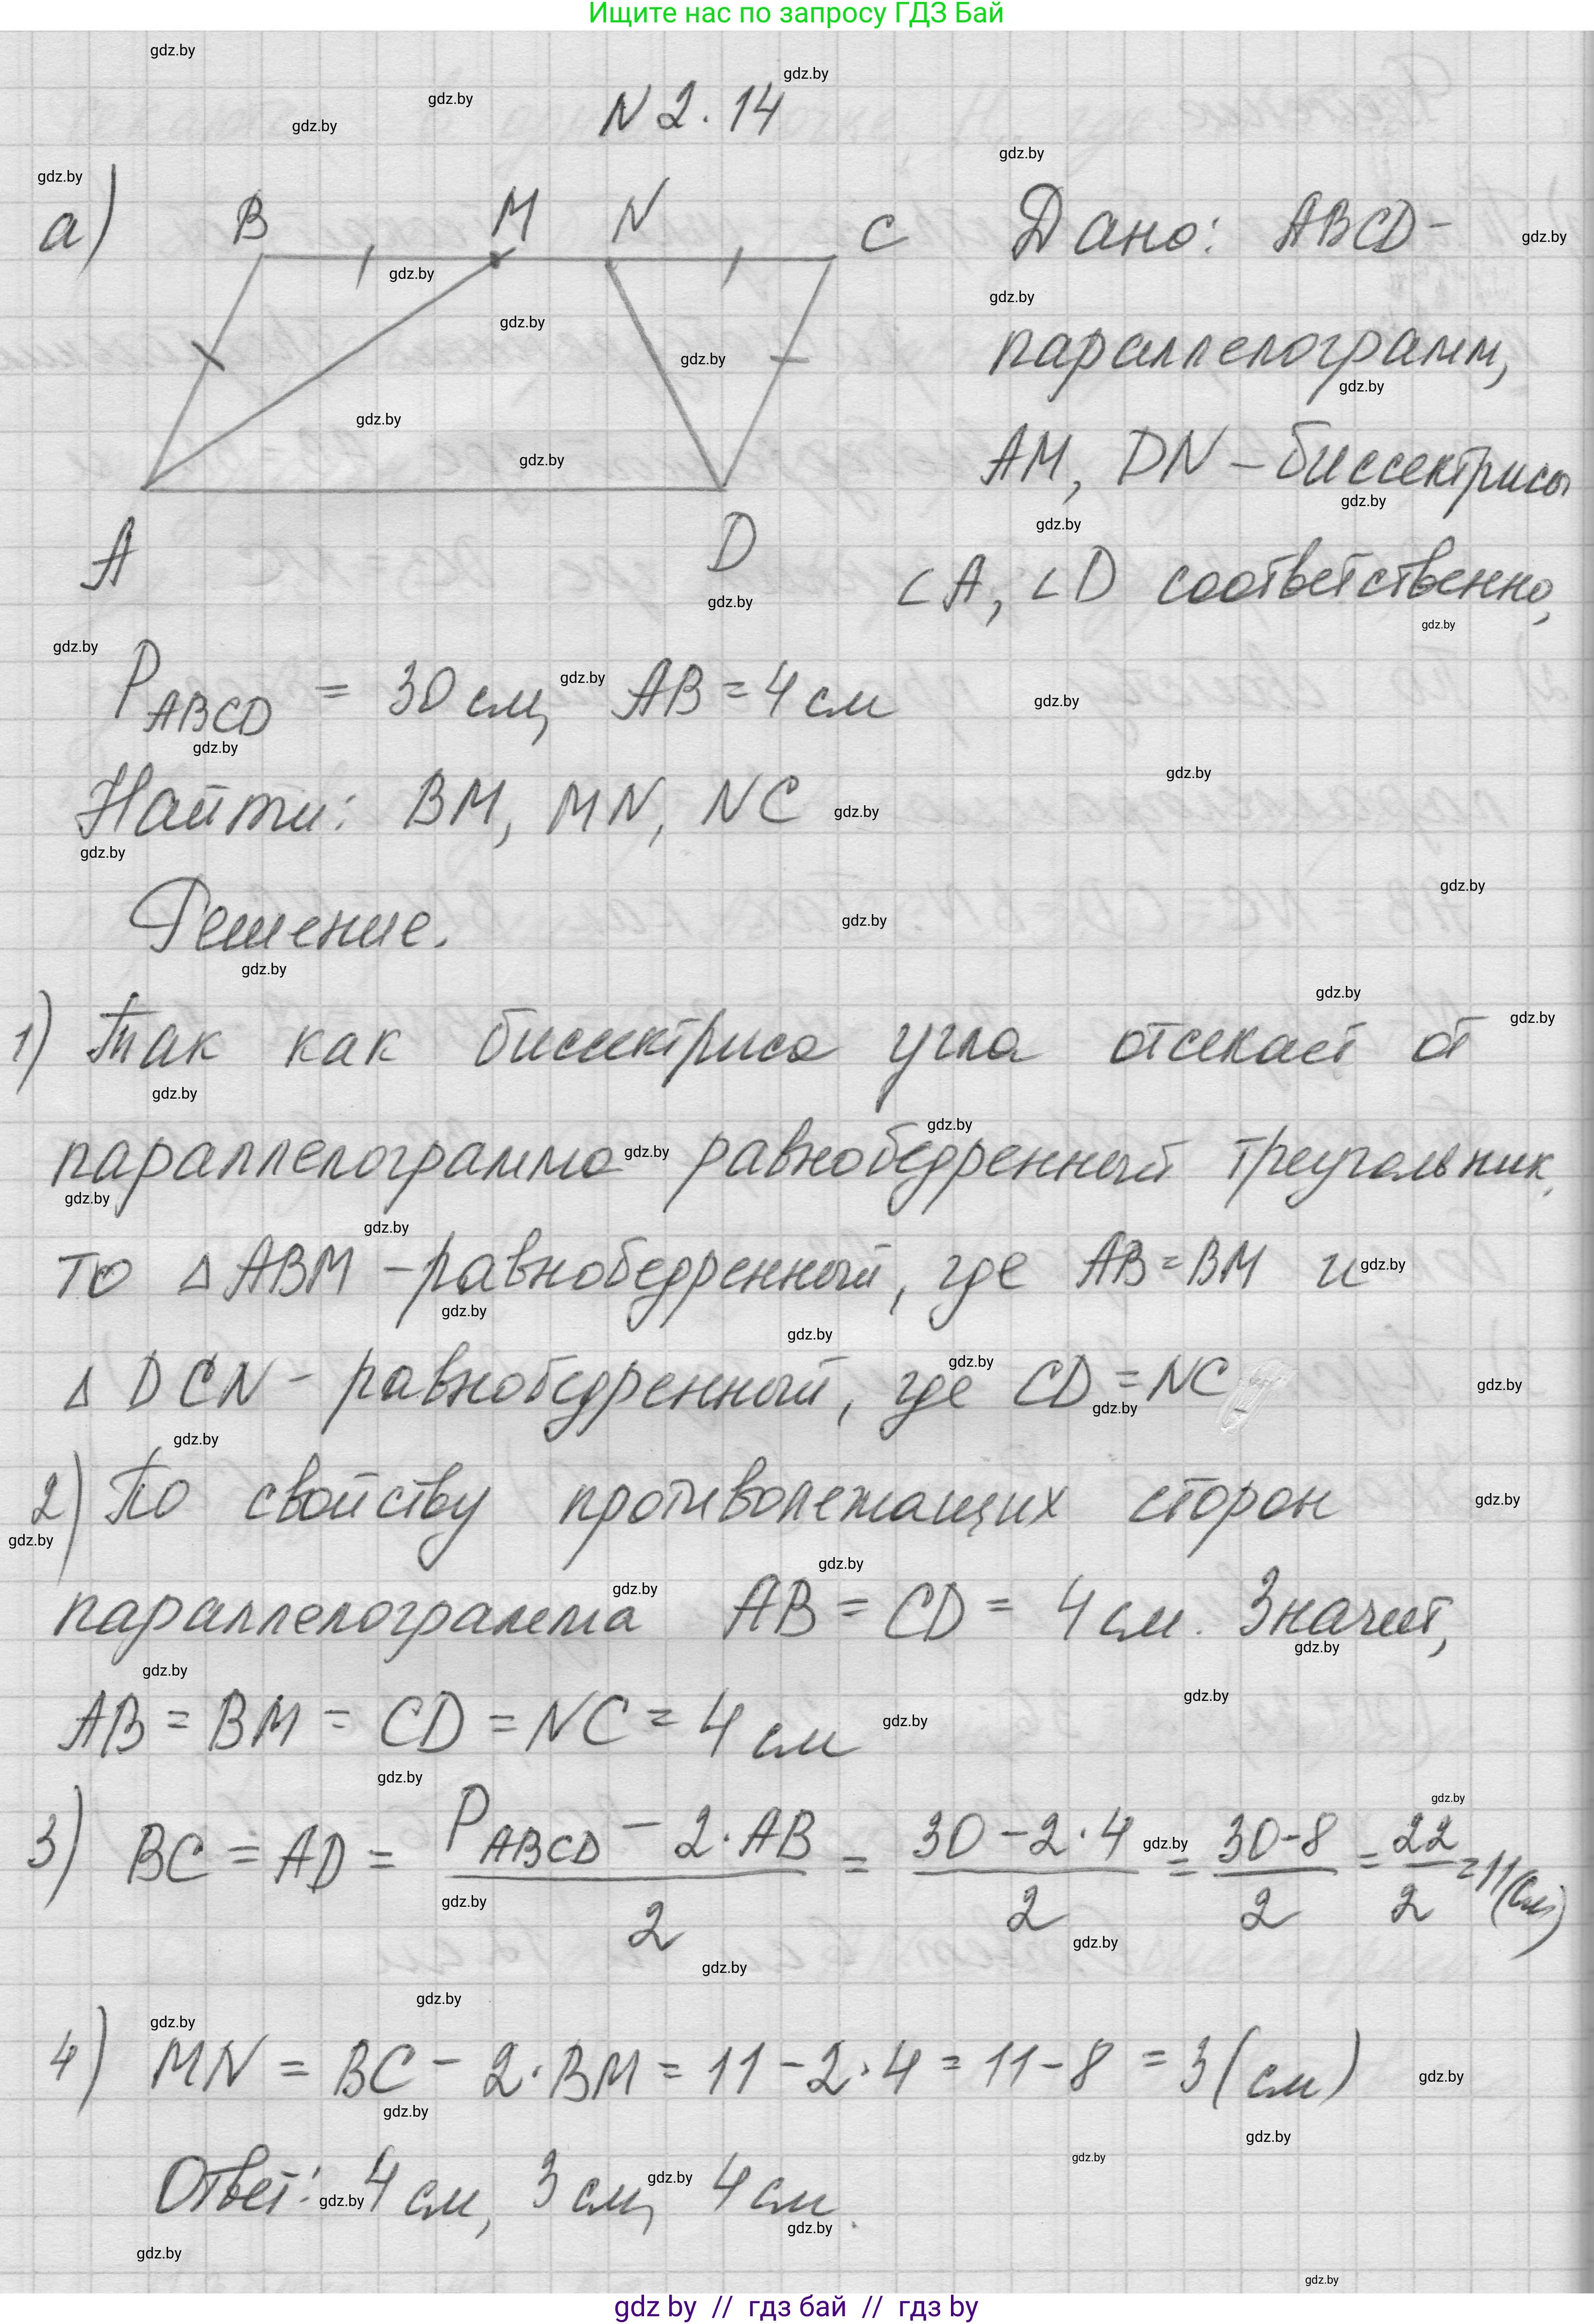 Ищите нас по запросу ГДЗ Бай
N 2.14
а) B M N C
A D
Дано: ABCD -
параллелограмм,
AM, DN - биссектрисы
∠A, ∠D соответственно,
P_ABCD = 30 см, AB = 4 см
Найти: BM, MN, NC
Решение.
1) Так как биссектриса угла отсекает от
параллелограмма равнобедренный треугольник,
то △ABM - равнобедренный, где AB = BM и
△ DCN - равнобедренный, где CD = NC
2) По свойству противолежащих сторон
параллелограмма AB = CD = 4 см. Значит,
AB = BM = CD = NC = 4 см
3) BC = AD = (P_ABCD - 2·AB)/2 = (30-2·4)/2 = (30-8)/2 = 22/2 = 11 (см)
4) MN = BC - 2·BM = 11 - 2·4 = 11 - 8 = 3 (см)
Ответ: 4 см, 3 см, 4 см.
gdz by // гдз бай // гдз by